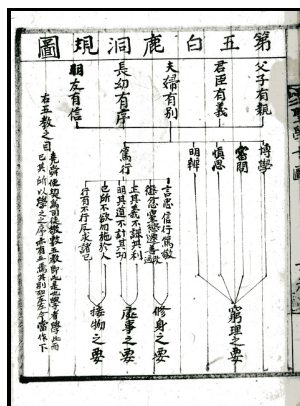 第五白鹿洞規圖
父子有親
君臣有義
夫婦有別
長幼有序
朋友有信
博學
審問
愼思
明辨
篤行
窮理之要
言忠信行篤敬
懲忿窒慾遷善改過
正其義不謀其利
明其道不計其功
己所不欲勿施於人
行有不得反求諸己
修身之要
處事之要
接物之要
右五教之目
堯舜使契爲司徒敬敷五教即此是也學者學此而
已其所以學之之序亦有五焉其別如左今當作下